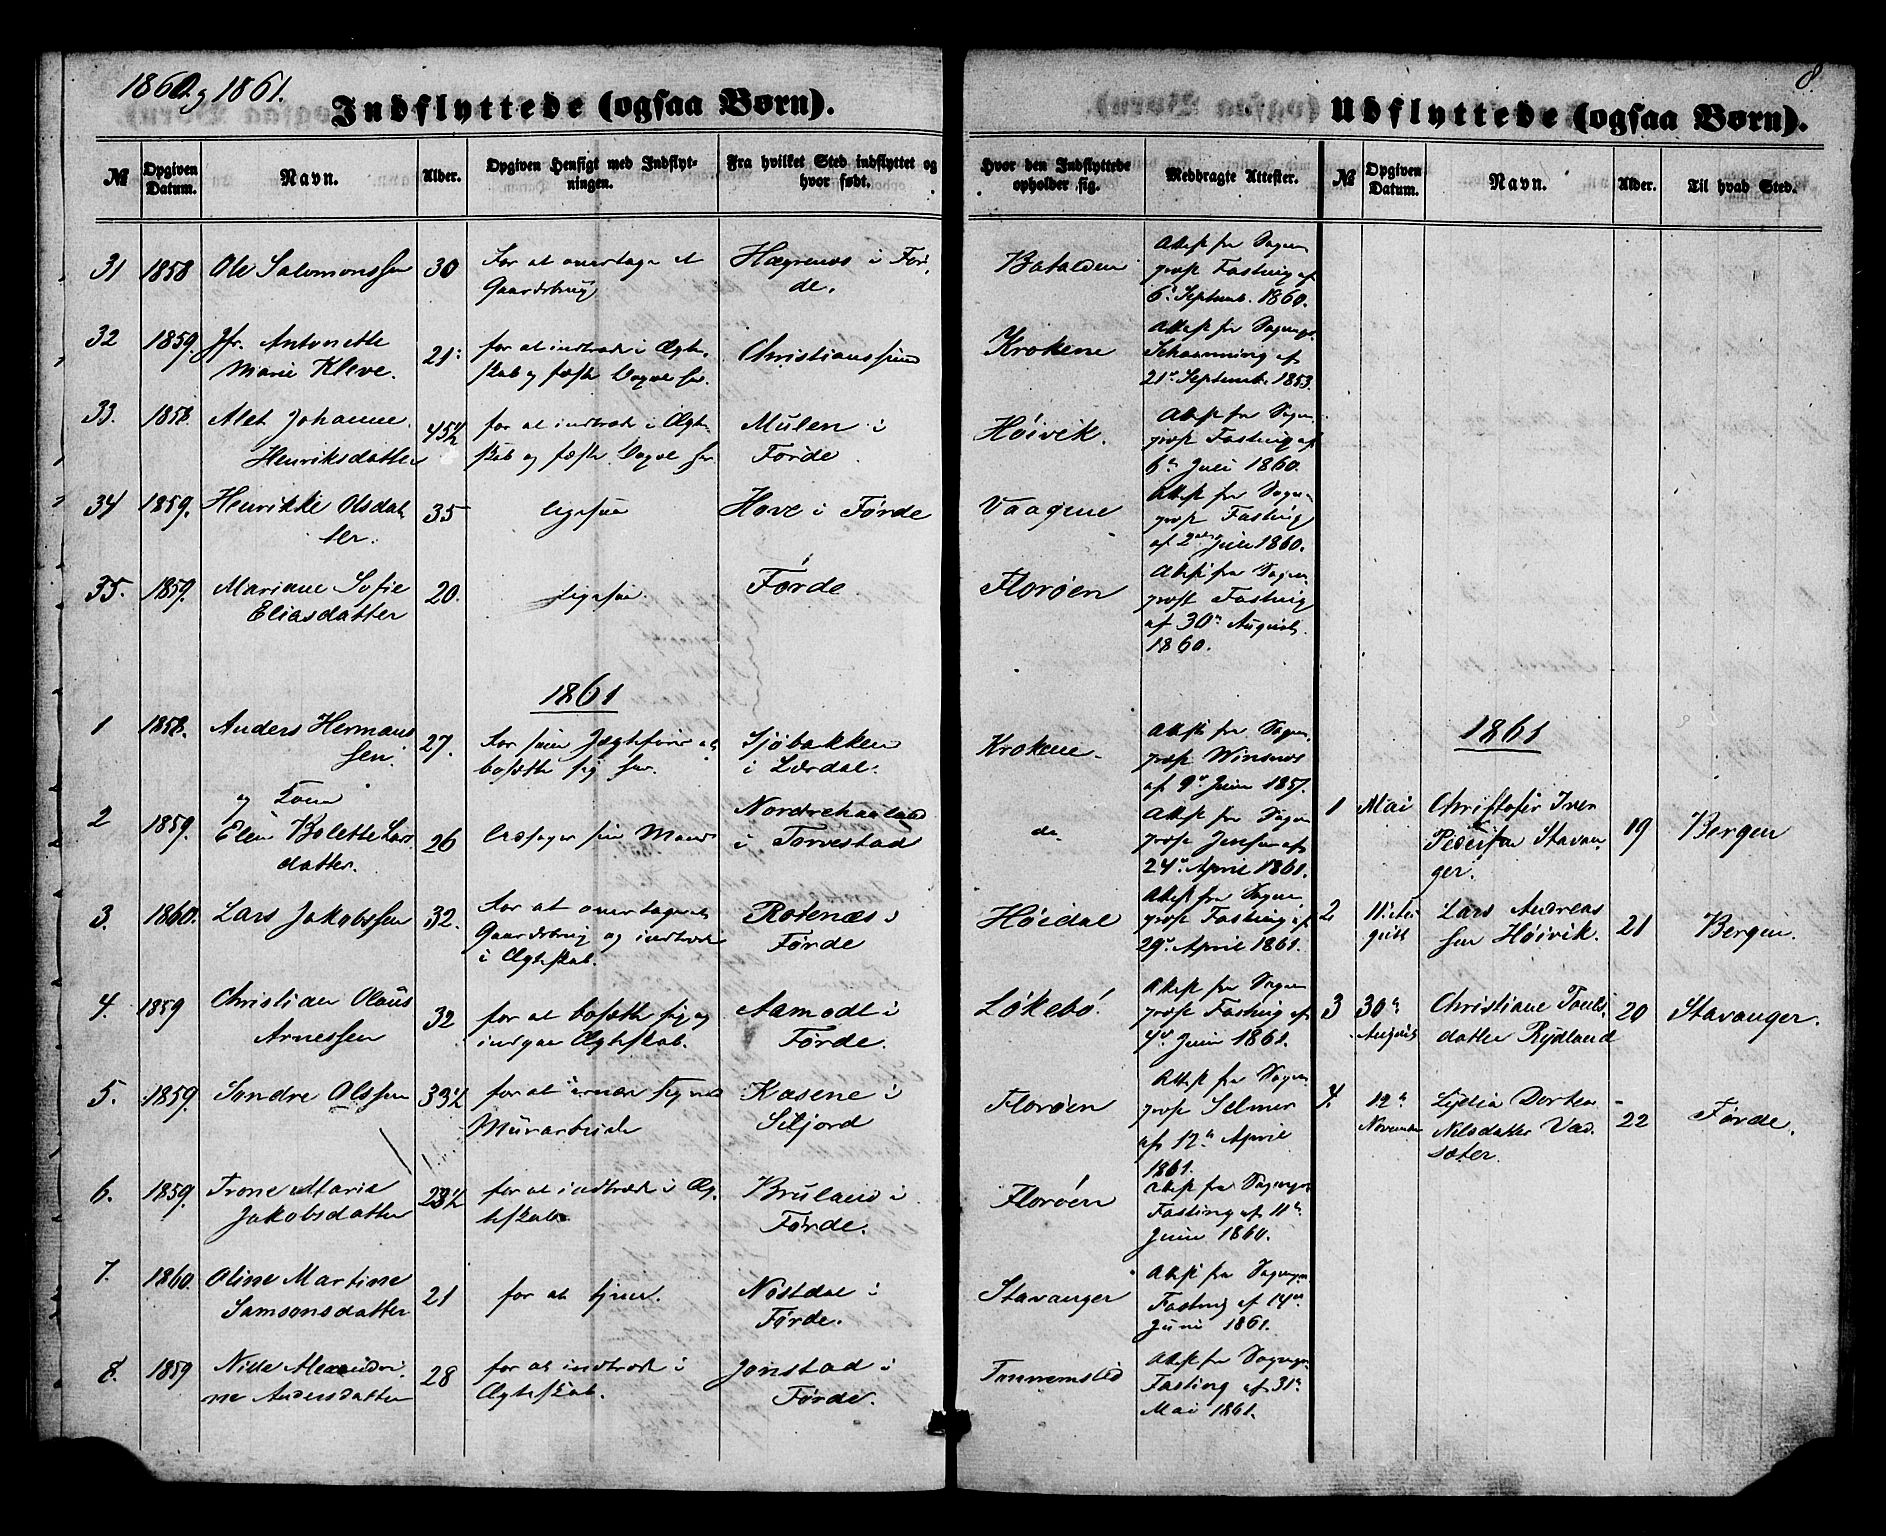 1860 og 1861.
8.
Indflyttede (ogsaa Børn).
Udflyttede (ogsaa Børn).
№ Opgiven Datum. Navn. Alder. Opgiven Hensigt med Indflytningen. Fra hvilket Sted indflyttet og hvor født. Hvor den Indflyttede opholder sig. Medbragte Attester. № Opgiven Datum. Navn. Alder. Til hvad Sted.
31 1858 Ole Salomonssen 30 For at overtage et Gaardsbrug Hægrenæs i Førde. Batalden Attest fra Sogneprest Fasting af 6te Septemb. 1860.
32 1859. Jfr. Antonette Marie Kleve. 21. for at indtræde i Ægteskab og fæste Bopæl her. Christianssund Krokene Attest fra Sognepr. Schanning af 21de Septemb. 1853.
33. 1858. Alet Johanne Henriksdatter 45½ for at indtræde i Ægteskab og fæste Bopæl her. Mulen i Førde Høivik. Attest fra Sogneprest Fasting af 6te Juli 1860.
34 1859. Henrikke Olsdatter. 35 ligesaa Hove i Førde Vaagene Attest fra Sogneprest Fasting af 2den Juli 1860.
35. 1859. Mariane Sofie Eliasdatter 20. ligesaa Førde Florøen Attest fra Sogneprest Fasting af 30te August 1860.
1861
1 1858. Anders Hermanssen. 27. For som Jægtefører at bosætte sig her. Sjøbakken i Lærdal. Krokene. Attest fra Sogneprest Winsnes af 9de Juni 1857.
2 1859. og Kone Elen Bolette Larsdatter. 26 ledsager sin Mand Nordrehaaland i Torvestad do Attest fra Sogneprest Jensen af 24de April 1861.
3. 1860. Lars Jakobssen 32. For at overtage et Gaardsbrug og indtræde i Ægteskab. Rotenæs i Førde Høidal Attest fra Sogneprest Fasting af 29de April 1861.
4. 1859 Christian Olaüs Arnessen 32 for at bosætte sig og indgaa Ægteskab. Aamodt i Førde. Løkebø. Attest fra Sogneprest Fasting af 4de Juni 1861.
5. 1859. Sondre Olssen 33½ for at ernære sig ved Mürarbeide Kasene i Siljord Florøen Attest fra Sogneprest Selmer af 12te April 1861.
6. 1859. Trone Maria Jakobsdatter 23½ for at indtræde i Ægteskab Bruland i Førde. Florøen Attest fra Sognepr. Fasting af 11te Juni 1860.
7. 1860. Oline Martine Samsonsdatter 21 for at tjene. Nøstdal i Førde. Stavanger Attest fra Sognepr. Fasting af 14de Juni 1861.
8. 1859 Nille Alexandrine Andersdatter 28 for at indtræde i Ægteskab. Jonstad i Førde. Attest fra Sognepr. Fasting af 31te Mai 1861.
1861
1 Mai Christofer Iver Pedersen Stavanger. 19 Bergen
2 11te August Lars Andreassen Høivik. 21 Bergen.
3 30te August Christiane datter Rydland 20 Stavanger.
4. 12te November Lydia Dorthea Nilsdatter Vadsæter. 22 Førde.